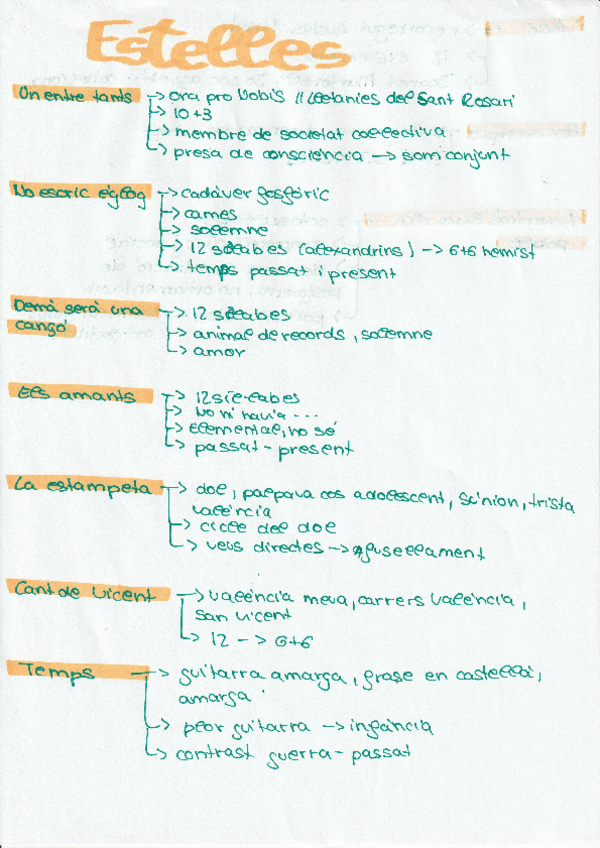 Estelles
Un entre tants → ora pro Nobis // lletanies del Sant Rosari
→ 10+3
→ membre de societat col·lectiva
→ presa de consciència → som conjunt
No escric èglog → cadàver fosfòric
→ cames
→ solemne
→ 12 síl·labes (alexandrins) → 6+6 hemist
→ temps passat i present
Demà serà una → 12 síl·labes
cançó → animal de records, solemne
→ amor
Els amants → 12 síl·labes
→ No hi havia ...
→ Elemental, no sé
→ passat - present
La estampeta → dol, palpava cos adolescent, trista
València
→ cicle del dol
→ veus directes → afusellament
Cant de Vicent → València meva, carrers València,
san Vicent
→ 12 → 6+6
Temps → guitarra amarga, frase en castellà,
amarga
→ plor guitarra → infància
→ contrast guerra - passat